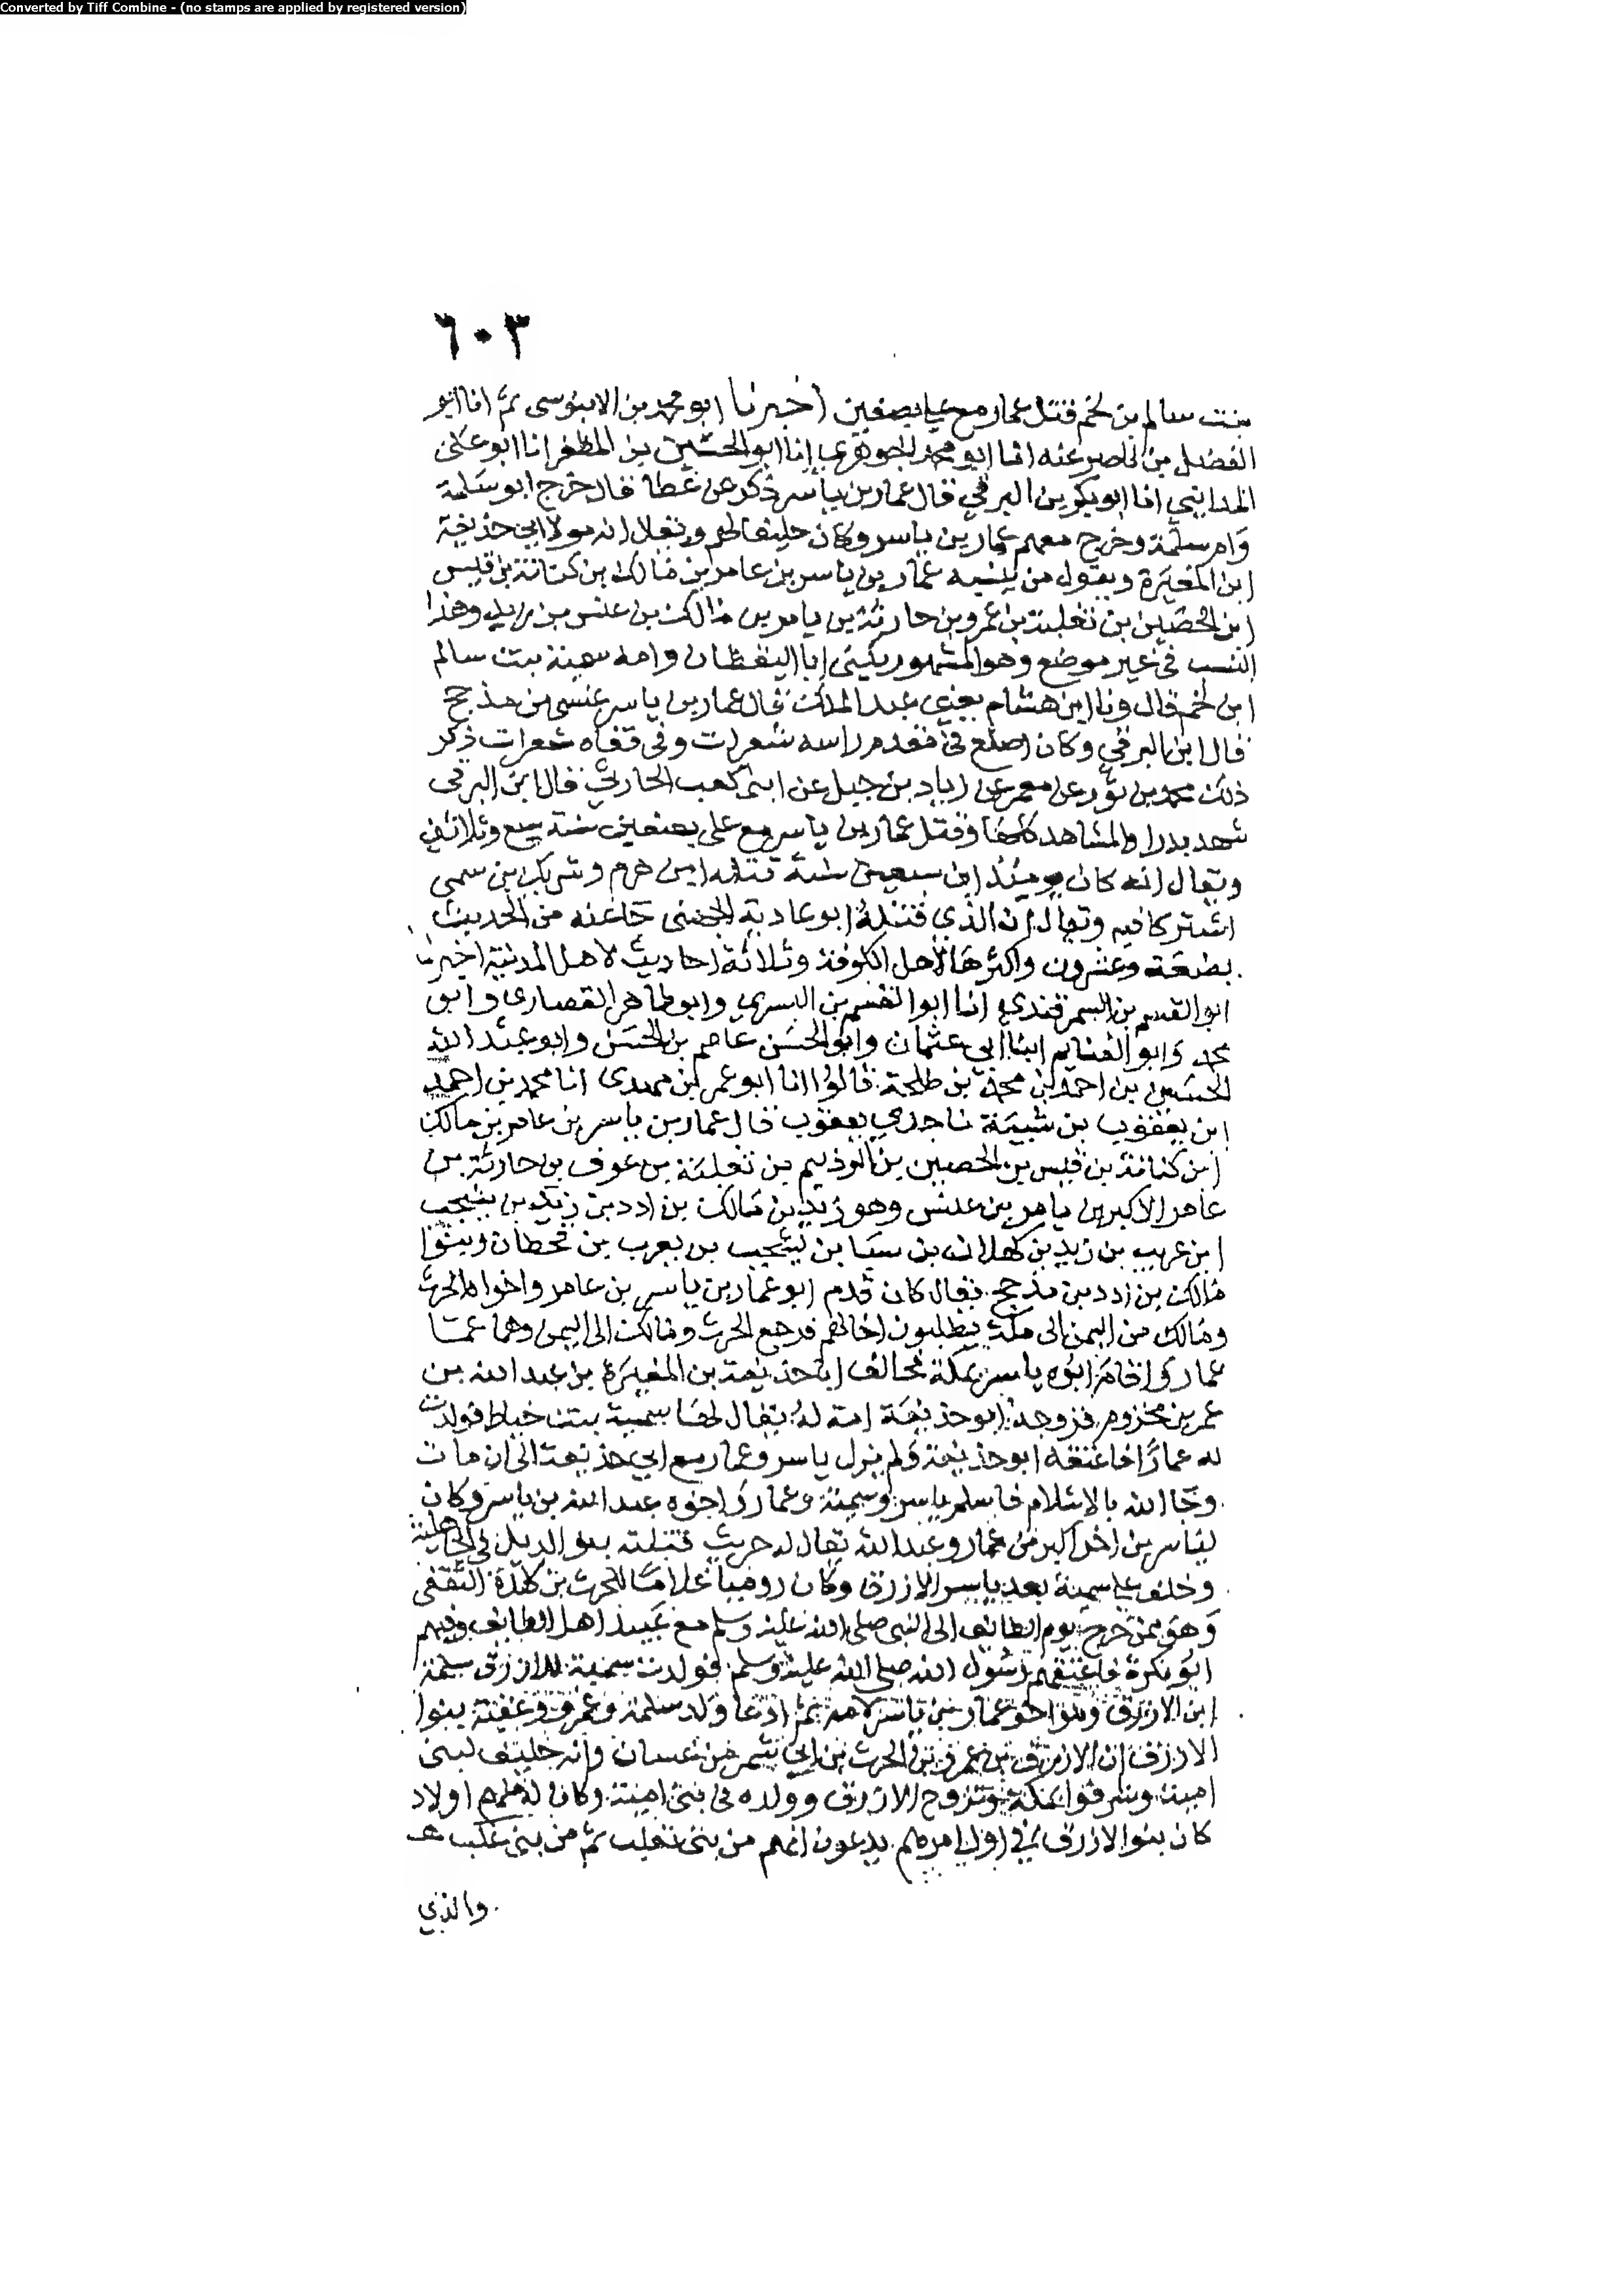 Converted by Tiff Combine - (no stamps are applied by registered version)
٦٠٣
بنت سالم بن لخم قتل عمار مع علي بصفين اخبرنا ابو محمد بن الابنوسي ثم انا ابو
الفضل بن ناصر عنه انا ابو محمد الجوهري انا ابو الحسين بن المظفر انا ابو علي
المدايني انا ابو بكر بن البرقي قال عمار بن ياسر ذكر عن عطا قال خرج ابو سلمة
وام سلمة وخرج معهم عمار بن ياسر وكان حليفا لهم ويقال انه مولا ابي حذيفة
ابن المغيرة ويقول من ينسبه عمار بن ياسر بن عامر بن مالك بن كنانة بن قيس
ابن الحصين بن ثعلبة بن عمرو بن حارثة بن يام بن مالك بن عنس بن زيد وهذا
النسب في غير موضع وهو المشهور يكنى ابا اليقظان وامه سمية بنت سالم
ابن لخم قال ونا ابن هشام يعني عبد الملك قال عمار بن ياسر عنسي من مذحج
قال ابن البرقي وكان اصلع في مقدم راسه شعرات وفي قفاه شعرات ذكر
ذلك محمد بن ثور عن معمر عن زياد بن جيل عن ابي كعب الحارثي قال ابن البرقي
شهد بدرا والمشاهد كلها وقتل عمار بن ياسر مع علي بصفين سنة سبع وثلاثين
ويقال انه كان يومئذ ابن سبعين سنة قتله ابن هرم وشريك بن سمي
اشتركا فيه ويقال ان الذي قتله ابو عادية الجهني جا عنه من الحديث
بضعة وعشرون واكثرها لاهل الكوفة وثلاثة احاديث لاهل المدينة اخبرنا
ابو القسم بن السمرقندي انا ابو القسم بن البسري وابو طاهر القصاري وابو
محمد وابو الغنايم ابنا ابي عثمان وابو الحسن عاصم بن الحسن وابو عبد الله
الحسين بن احمد بن محمد بن طلحة قالوا انا ابو عمر بن مهدي انا محمد بن احمد
ابن يعقوب بن شيبة نا جدي يعقوب قال عمار بن ياسر بن عامر بن مالك
ابن كنانة بن قيس بن الحصين بن الوذيم بن ثعلبة بن عوف بن حارثة بن
عامر الاكبر بن يام بن عنس وهو زيد بن مالك بن ادد بن زيد بن يشجب
ابن عريب بن زيد بن كهلان بن سبا بن يشجب بن يعرب بن قحطان وبنوا
مالك بن ادد من مذحج يقال كان قدم ابو عمار بن ياسر بن عامر واخواه الحرث
ومالك من اليمن الى مكة يطلبون اخا لهم فرجع الحرث ومالك الى اليمن وهما عما
عمار واقام ابوه ياسر بمكة فحالف ابا حذيفة بن المغيرة بن عبد الله بن
عمر بن مخزوم فزوجه ابو حذيفة امة له يقال لها سمية بنت خياط فولدت
له عمارا فاعتقه ابو حذيفة ولم يزل ياسر وعمار مع ابي حذيفة الى ان مات
وجا الله بالاسلام فاسلم ياسر وسمية وعمار واخوه عبد الله بن ياسر وكان
لياسر بن اخر اكبر من عمار وعبد الله يقال له حريث قتلته بنو الديل في الجاهلية
وخلف على سمية بعد ياسر الازرق وكان روميا غلاما للحرث بن كلدة الثقفي
وهو ممن خرج يوم الطايف الى النبي صلى الله عليه وسلم مع عبيد اهل الطايف وفيهم
ابو بكرة فاعتقهم رسول الله صلى الله عليه وسلم فولدت سمية للازرق سلمة
ابن الازرق وهو اخو عمار بن ياسر لامه ثم ادعا ولد سلمة وعمرو وعقبة بنوا
الازرق ان الازرق بن عمرو بن الحرث بن ابي شمر من غسان وانه حليف لبني
امية وشرفوا بمكة وتزوج الازرق وولده في بني امية وكان له منهم اولاد
كان بنو الازرق في اول امرهم يدعون انهم من بني تغلب ثم من بني عكب
والذي